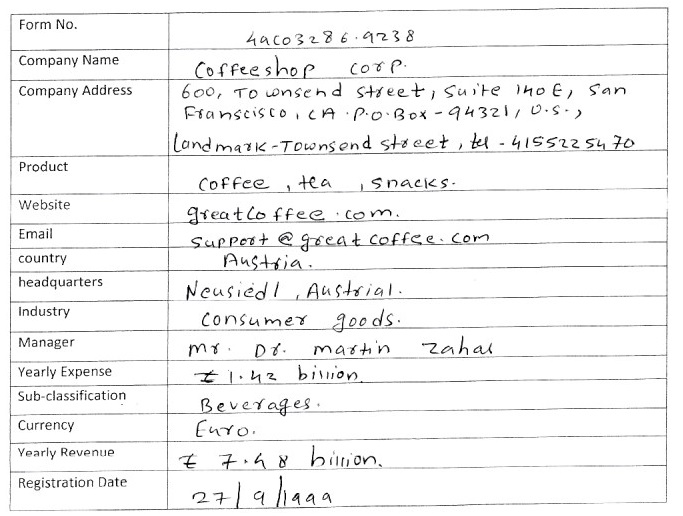 Form No.
4ac03286.9238
Company Name
Coffeeshop corp.
Company Address
600, Townsend street, Suite 140 E, San
Franscisco, CA. P.O.Box - 94321, U.S.,
Landmark - Townsend street, tel - 4155225470
Product
coffee, tea, snacks.
Website
greatcoffee.com.
Email
support@greatcoffee.com
country
Austria.
headquarters
Neusiedl, Austrial.
Industry
Consumer goods.
Manager
Mr. Dr. martin zahal
Yearly Expense
£ 1.42 billion.
Sub-classification
Beverages.
Currency
Euro.
Yearly Revenue
£ 7.48 billion.
Registration Date
27/9/1999